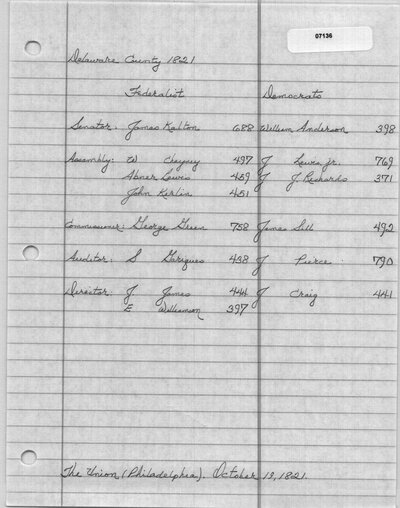 07136
Delaware County 1821
Federalist Democrats
Senator: James Kelton 688 William Anderson 398
Assembly: W Cheyney 497 J Lewis, jr. 769
Abner Lewis 459 J J. Richards 371
John Kerlin 451
Commissioner: George Green 758 James Sill 492
Auditor: S Garigues 438 J Pierce 790
Director: J James 444 J Craig 441
E Williamson 397
The Union (Philadelphia). October 19, 1821.